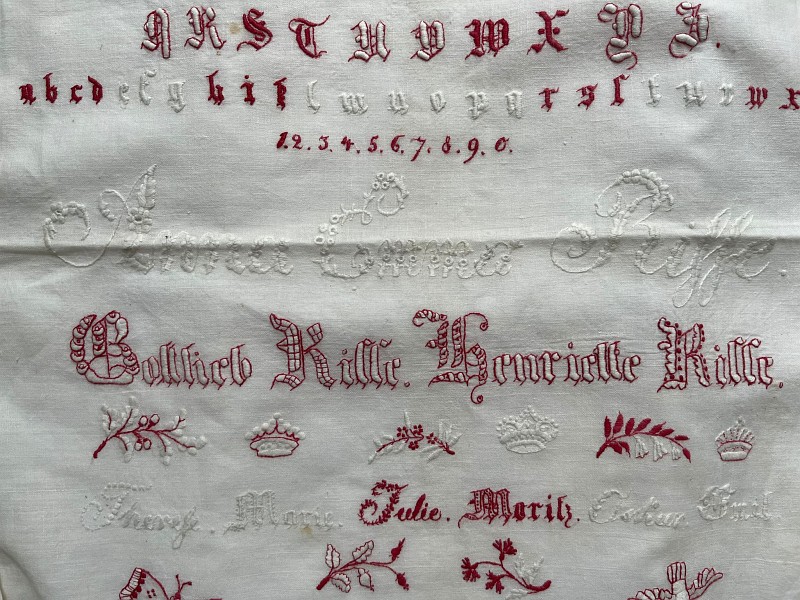 Q R S T U V W X Y Z.
a b c d e f g h i k l m n o p q r s ſ t u v w x
1. 2. 3. 4. 5. 6. 7. 8. 9. 0.
Anna Emma Riſſe.
Gottlieb Riſſe. Henriette Riſſe.
Marie. Julie. Moritz. Oskar. Emil.